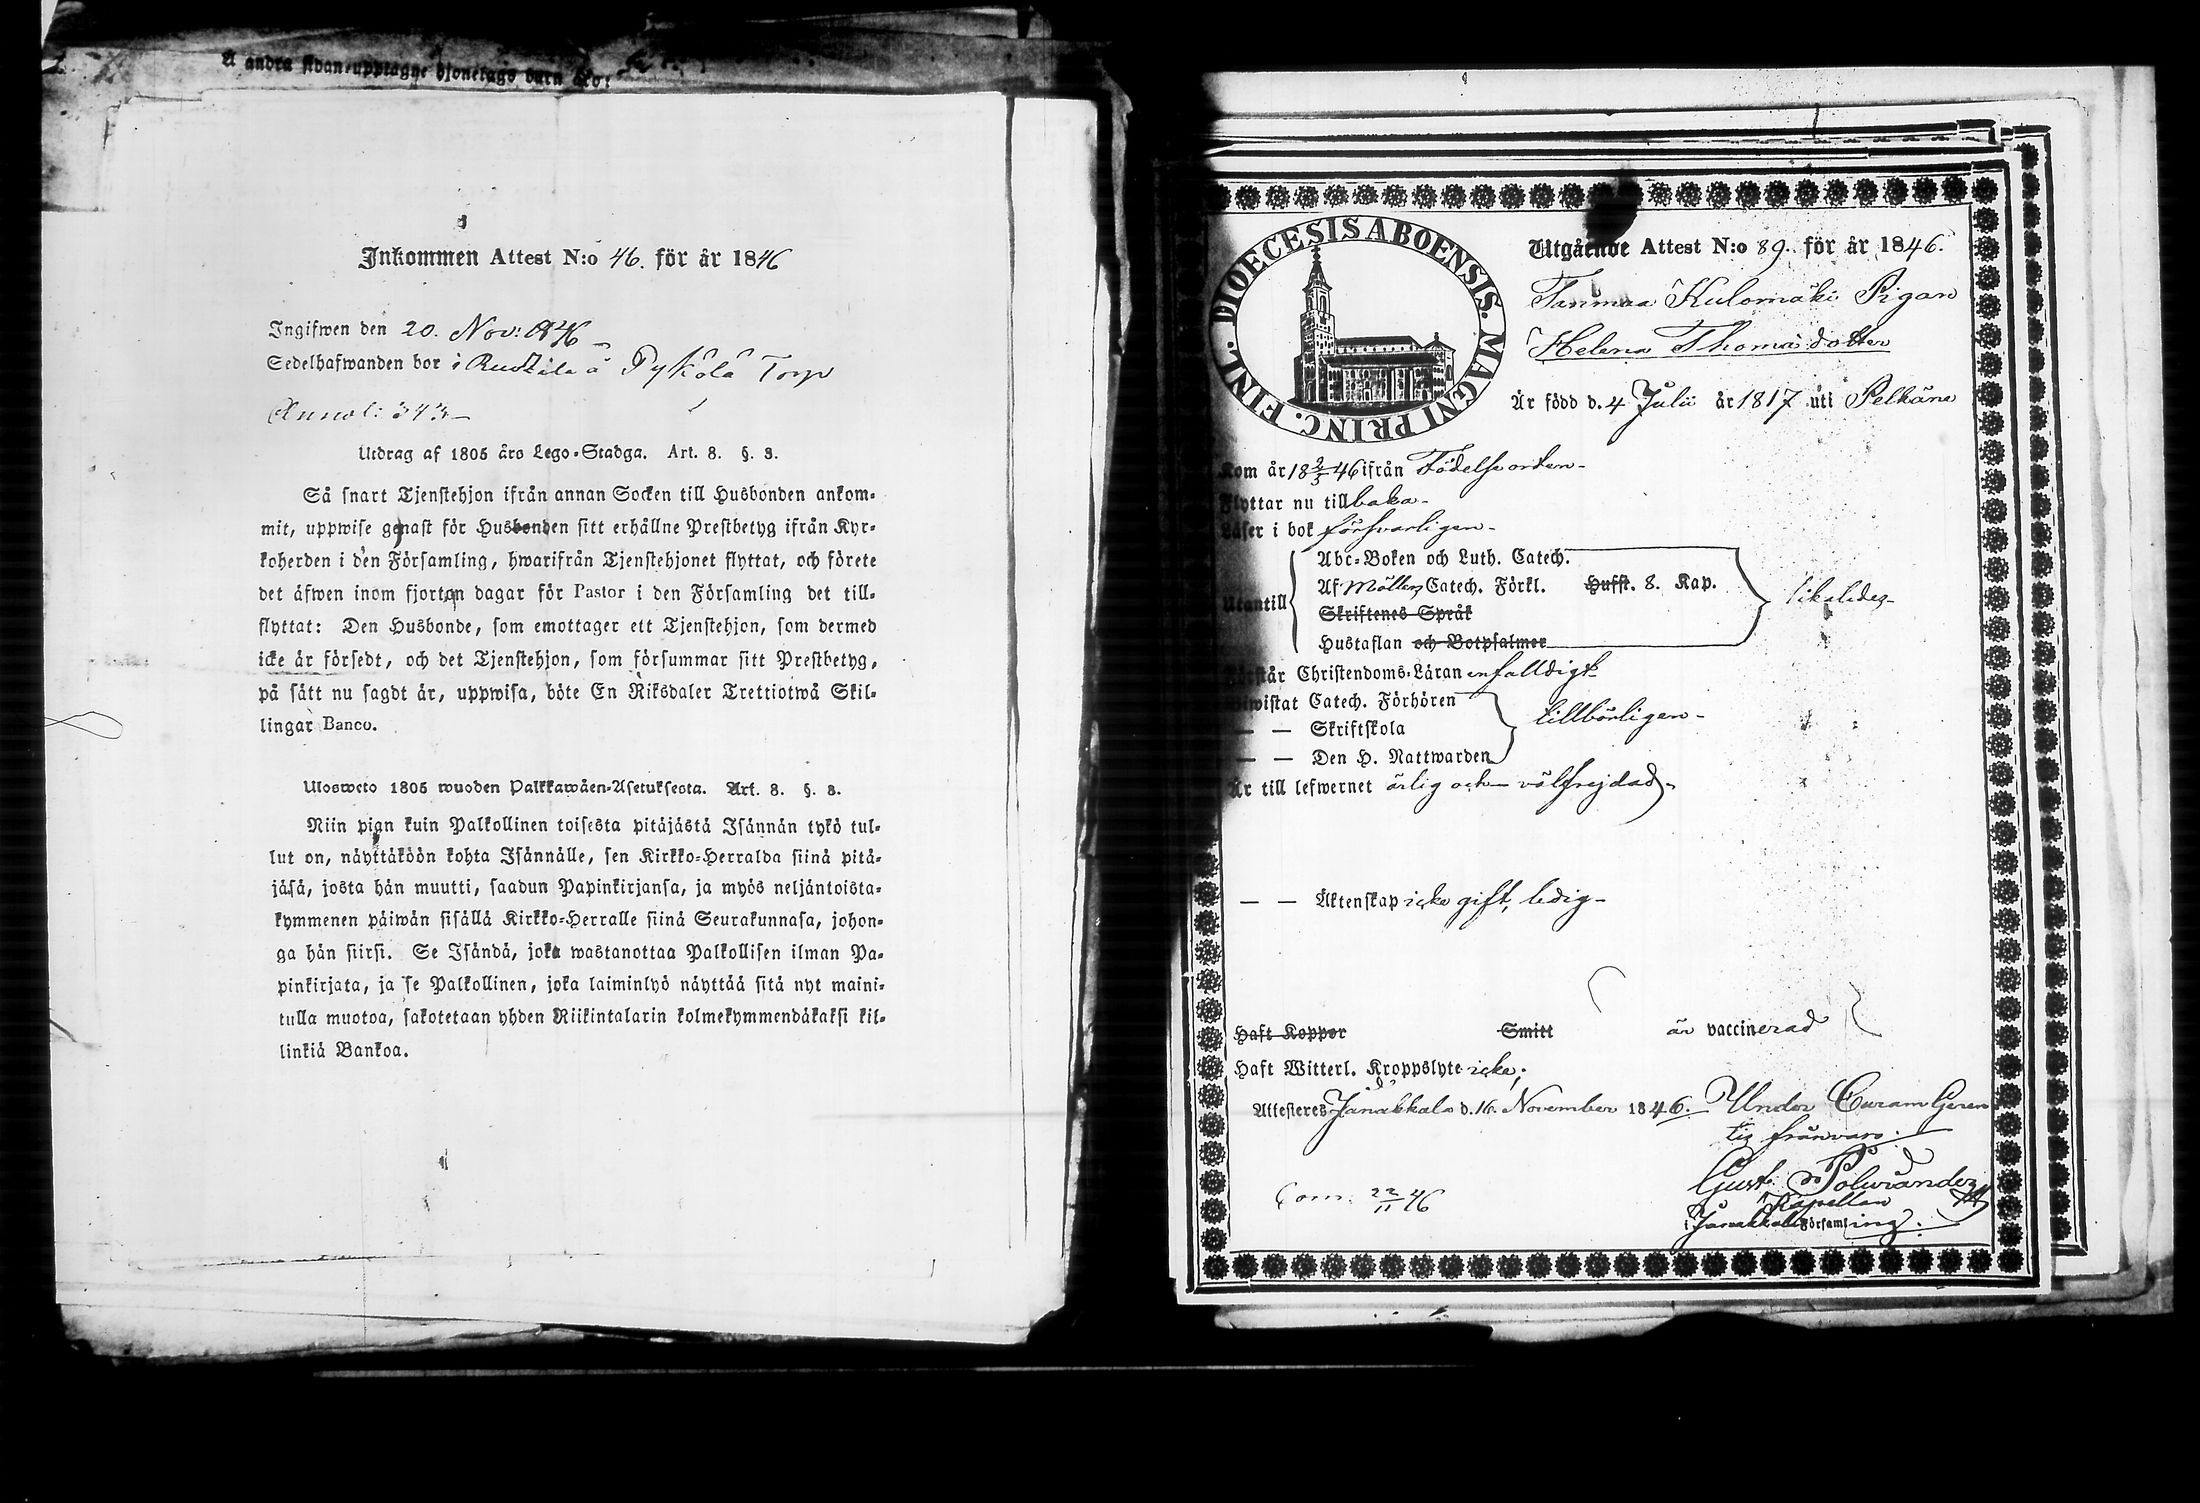 Inkommen Attest N:o 46. för år 1846
Ingifwen den 20. Nov: 1846
Sedelhafwanden bor i Ruokola å Pykälä Torp
Annot: 343
Utdrag af 1805 års Lego-Stadga. Art. 8. §. 3.
Så snart Tjenstehjon ifrån annan Socken till Husbonden ankom-
mit, uppwise genast för Husbonden sitt erhållne Prestbetyg ifrån Kyr-
koherden i den Församling, hwarifrån Tjenstehjonet flyttat, och förete
det äfwen inom fjorton dagar för Pastor i den Församling det till-
flyttat: Den Husbonde, som emottager ett Tjenstehjon, som dermed
icke är försedt, och det Tjenstehjon, som försummar sitt Prestbetyg,
på sätt nu sagdt är, uppwisa, böte En Riksdaler Trettiotwå Skil-
lingar Banco.
Ulosweto 1805 wuoden Palkkawäen-Asetuksesta. Art. 8. §. 3.
Niin pian kuin Palkollinen toisesta pitäjästä Isännän tykö tul-
lut on, näyttäköön kohta Isännälle, sen Kirkko-Herralda siinä pitä-
jäsä, josta hän muutti, saadun Papinkirjansa, ja myös neljäntoista-
kymmenen päiwän sisällä Kirkko-Herralle siinä Seurakunnasa, johon-
ga hän siirsi. Se Isändä, joka wastanottaa Palkollisen ilman Pa-
pinkirjata, ja se Palkollinen, joka laiminlyö näyttää sitä nyt maini-
tulla muotoa, sakotetaan yhden Riikintalarin kolmekymmendäkaksi kil-
linkiä Bankoa.
DIOECESIS ABOENSIS. MAGNI PRINC. FINL.
Utgående Attest N:o 89. för år 1846.
Tanmaa Kulomäki Pigan
Helena Thomädotter
Är född d. 4 Julii år 1817 uti Pelkäne
Kom år 18 2/3 46 ifrån Födelseorten
Flyttar nu tillbaka
Läser i bok försvarligen
Abc-Boken och Luth. Catech.
Utantill Af Möllers Catech. Förkl. Husst. 8. Kap. likaledes
Skriftenes Språk
Hustaflan och Botpsalmer
Förstår Christendoms-Läran enfaldigt
Biwistat Catech. Förhören
— — Skriftskola tillbörligen
— — Den H. Nattwarden
Är till lefwernet ärlig och välfrejdad
— — Äktenskap icke gift, ledig
Haft Koppor Smitt är vaccinerad
Haft Witterl. Kroppslyte icke;
Attesteres Janakkala d. 16. November 1846. Under Curam Geren
tis frånvaro.
Gust. Polviander
Kapellan
i Janakkala Församling.
Com. 22/11 46